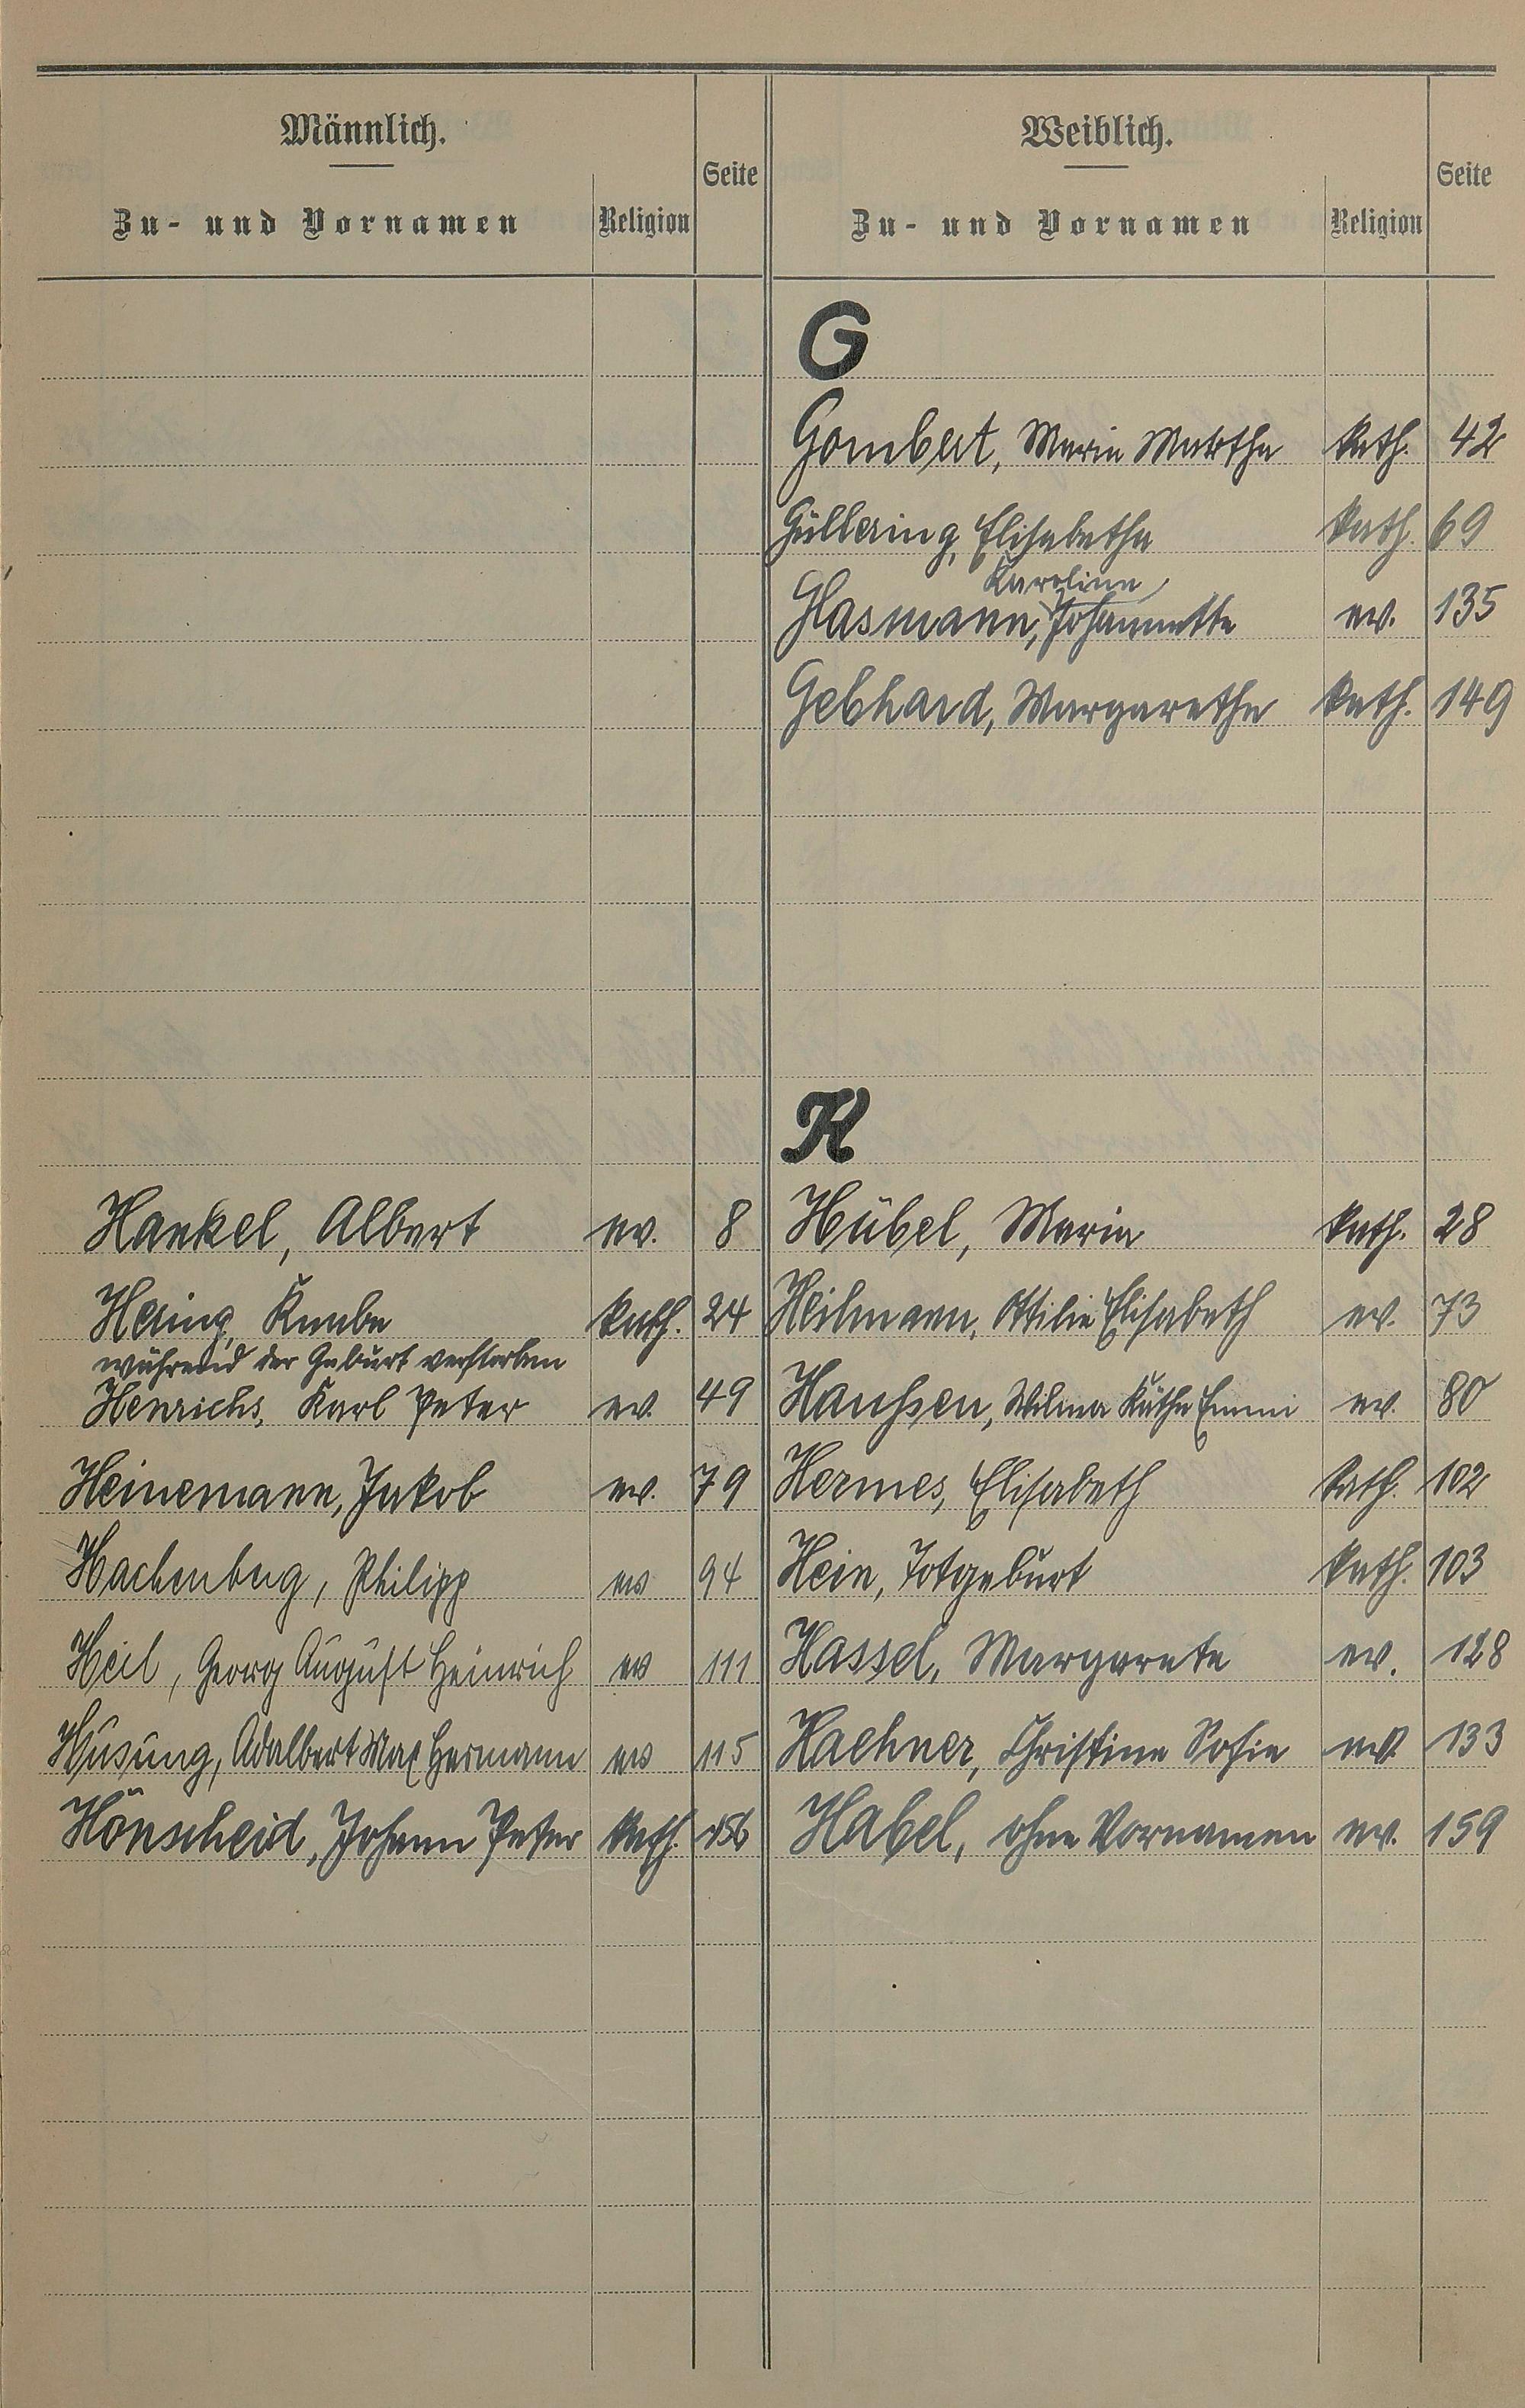 Männlich.
Zu- und Vornamen
Religion
Seite
Weiblich.
Zu- und Vornamen
Religion
Seite
G
Gombert, Maria Martha kath. 42
Güllering, Elisabetha kath. 69
Karoline
Glasmann, Johannette ev. 135
Gebhard, Margarethe kath. 149
H
Hankel, Albert ev. 8
Hübel, Maria kath. 28
Hering, Knabe kath. 24
während der Geburt verstorben
Heilmann, Ottilie Elisabeth ev. 73
Henrichs, Karl Peter ev. 49
Hanßen, Wilma Käthe Emmi ev. 80
Heinemann, Jakob ev. 79
Hermes, Elisabeth kath. 102
Hachenbug, Philipp ev 94
Hein, Totgeburt kath. 103
Heil, Georg August Heinrich ev 111
Hassel, Margarete ev. 128
Husung, Adalbert Max Hermann ev 115
Haehner, Christine Sofie ev. 133
Hönscheid, Johann Peter kath. 156
Habel, ohne Vornamen ev. 159